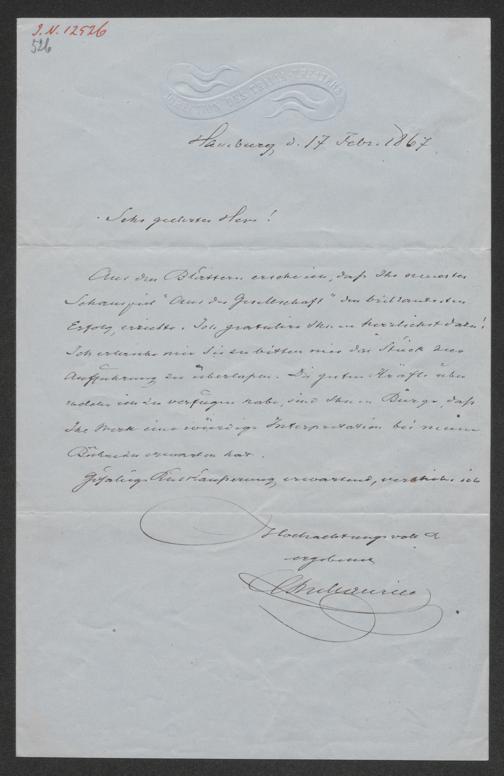 J.N. 12526
526
DIRECTION DES
Hamburg d. 17 Febr. 1867
Sehr geehrter Herr!
Aus den Blättern ersehe ich, daß Ihr neuestes
Schauspiel "Aus der Gesellschaft" den brillantesten
Erfolg erzielte. Ich gratulire Ihnen herzlichst dazu!
Ich erlaube mir Sie zu bitten mir das Stück zur
Aufführung zu überlaßen. Die guten Kräfte über
welche ich zu verfügen habe, sind Ihnen Bürge, daß
Ihr Werk eine würdige Interpretation bei meiner
Bühne zu erwarten hat.
Gefällige Rückäußerung erwartend, verbleibe ich
Hochachtungsvoll
ergebenst
Maurice